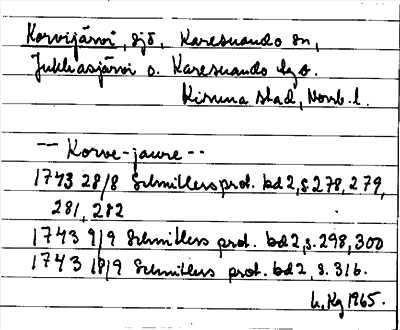 Korvijärvi, sjö, Karesuando sn,
Jukkasjärvi o. Karesuando lg o.
Kiruna stad, Norrb. l.
-- Korve-jaure --
1743 28/8 Schnitlers prot. bd 2, s. 278, 279,
281, 282
1743 9/9 Schnitlers prot. bd 2, s. 298, 300
1743 18/9 Schnitlers prot. bd 2, s. 316.
L. Kg 1965.